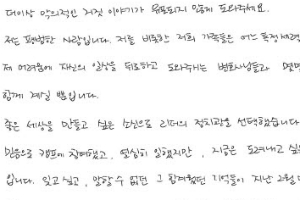 더이상 악의적인 거짓 이야기가 유포되지 않게 도와주세요.
저는 평범한 사람입니다. 저를 비롯한 저희 가족들은 어느 특정 세력
제 어려움에 자신의 일상을 뒤로하고 도와주시는 변호사님들과 몇몇
함께 계실 뿐입니다.
좋은 세상을 만들고 싶은 소신으로 리더의 정치관을 선택했습니다
믿음으로 캠프에 참여했고, 열심히 일했지만, 지금은 도려내고 싶은
입니다. 잊고 싶고, 말할 수 없던 그 힘겨웠던 기억들이 지난 2월 말